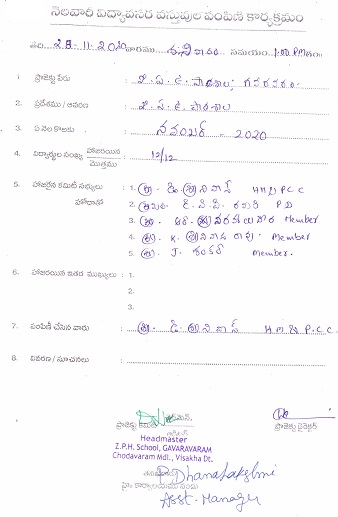 నెలవారీ విద్యావసర వస్తువుల పంపిణీ కార్యక్రమం
తేది 28-11-2020 వారము శనివారం సమయం 1:00 PM
1. ప్రాజెక్టు పేరు జి.ప.ఉ. పాఠశాల, గవరవరం
2. ప్రదేశము / ఆవరణ జి.ప.ఉ. పాఠశాల
3. ఏ నెల కొరకు నవంబర్ - 2020
4. విద్యార్థుల సంఖ్య హాజరయిన / మొత్తము 12/12
5. హాజరైన కమిటీ సభ్యులు 1. శ్రీ డి. శ్రీనివాస్ HM & PCC
హోదాతో 2. P D
3. Member
4. శ్రీ K. శ్రీనివాస రావు. Member
5. శ్రీ J. శంకర్ Member.
6. హాజరయిన ఇతర ముఖ్యులు : 1.
2.
3.
7. పంపిణీ చేసిన వారు శ్రీ డి. శ్రీనివాస్ HM & P.C.C.
8. వివరణ / సూచనలు
ప్రాజెక్టు కమిటీ ఛైర్మన్. ప్రాజెక్టు డైరెక్టర్
Headmaster
Z.P.H. School, GAVARAVARAM
Chodavaram Mdl., Visakha Dt.
P. Dhanalakshmi
హైం కార్యాలయము నందు
Asst. Manager